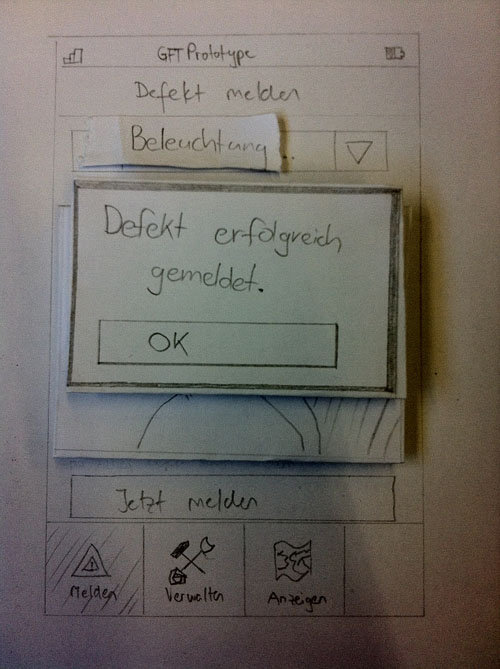 GFT Prototype
Defekt melden
Beleuchtung
Defekt erfolgreich
gemeldet.
OK
Jetzt melden
Melden
Verwalten
Anzeigen